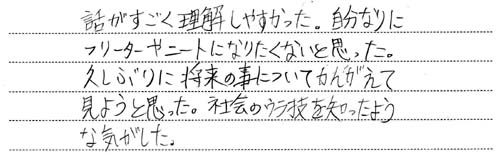 話がすごく理解しやすかった。自分なりに
フリーターやニートになりたくないと思った。
久しぶりに将来の事についてかんがえて
見ようと思った。社会のウラ技を知ったよう
な気がした。